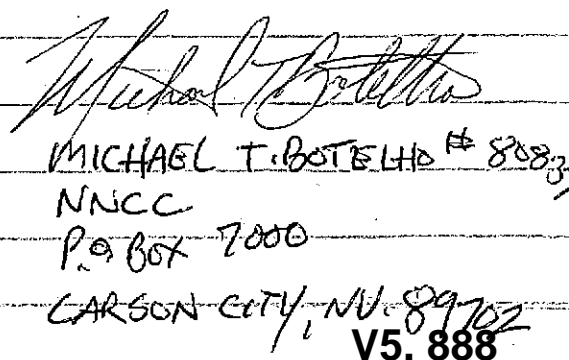 Michael T Botelho
MICHAEL T. BOTELHO # 80837
NNCC
P.O BOX 7000
CARSON CITY, NV. 89702
V5. 888